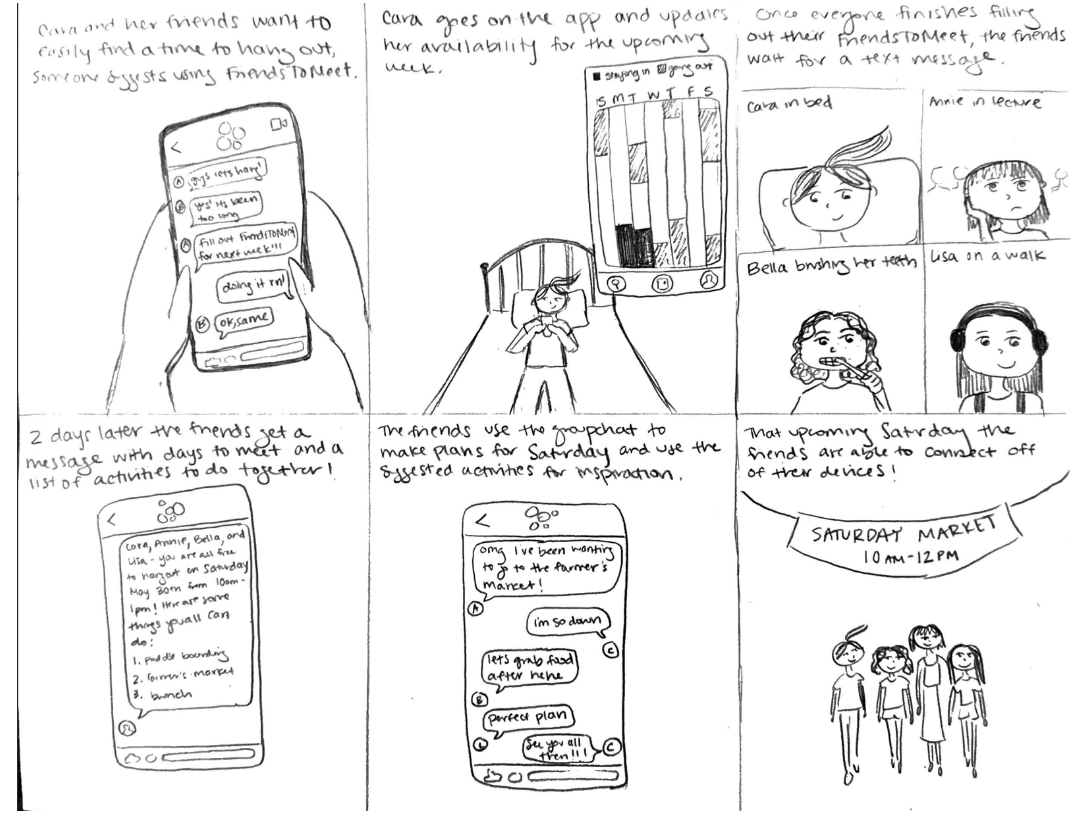 Cara and her friends want to
easily find a time to hang out,
someone suggests using FriendsToMeet.
<
A
guys lets hang!
B
yes! its been
too long
A
fill out FriendsToMeet
for next week!!!
doing it rn!
B
ok, same
Cara goes on the app and updates
her availability for the upcoming
week.
staying in going out
S M T W T F S
Once everyone finishes filling
out their FriendsToMeet, the friends
wait for a text message.
Cara in bed
Annie in lecture
Bella brushing her teeth
Lisa on a walk
2 days later the friends get a
message with days to meet and a
list of activities to do together!
<
Cara, Annie, Bella, and
Lisa - you are all free
to hangout on Saturday
May 30th from 10am-
1pm! Here are some
things you all can
do:
1. paddle boarding
2. farmer's market
3. brunch
The friends use the groupchat to
make plans for Saturday and use the
suggested activities for inspiration.
<
omg I've been wanting
to go to the farmer's
market!
A
i'm so down
C
lets grab food
after hehe
B
perfect plan
L
See you all
then!!!
C
That upcoming Saturday the
friends are able to connect off
of their devices!
SATURDAY MARKET
10 AM-12 PM